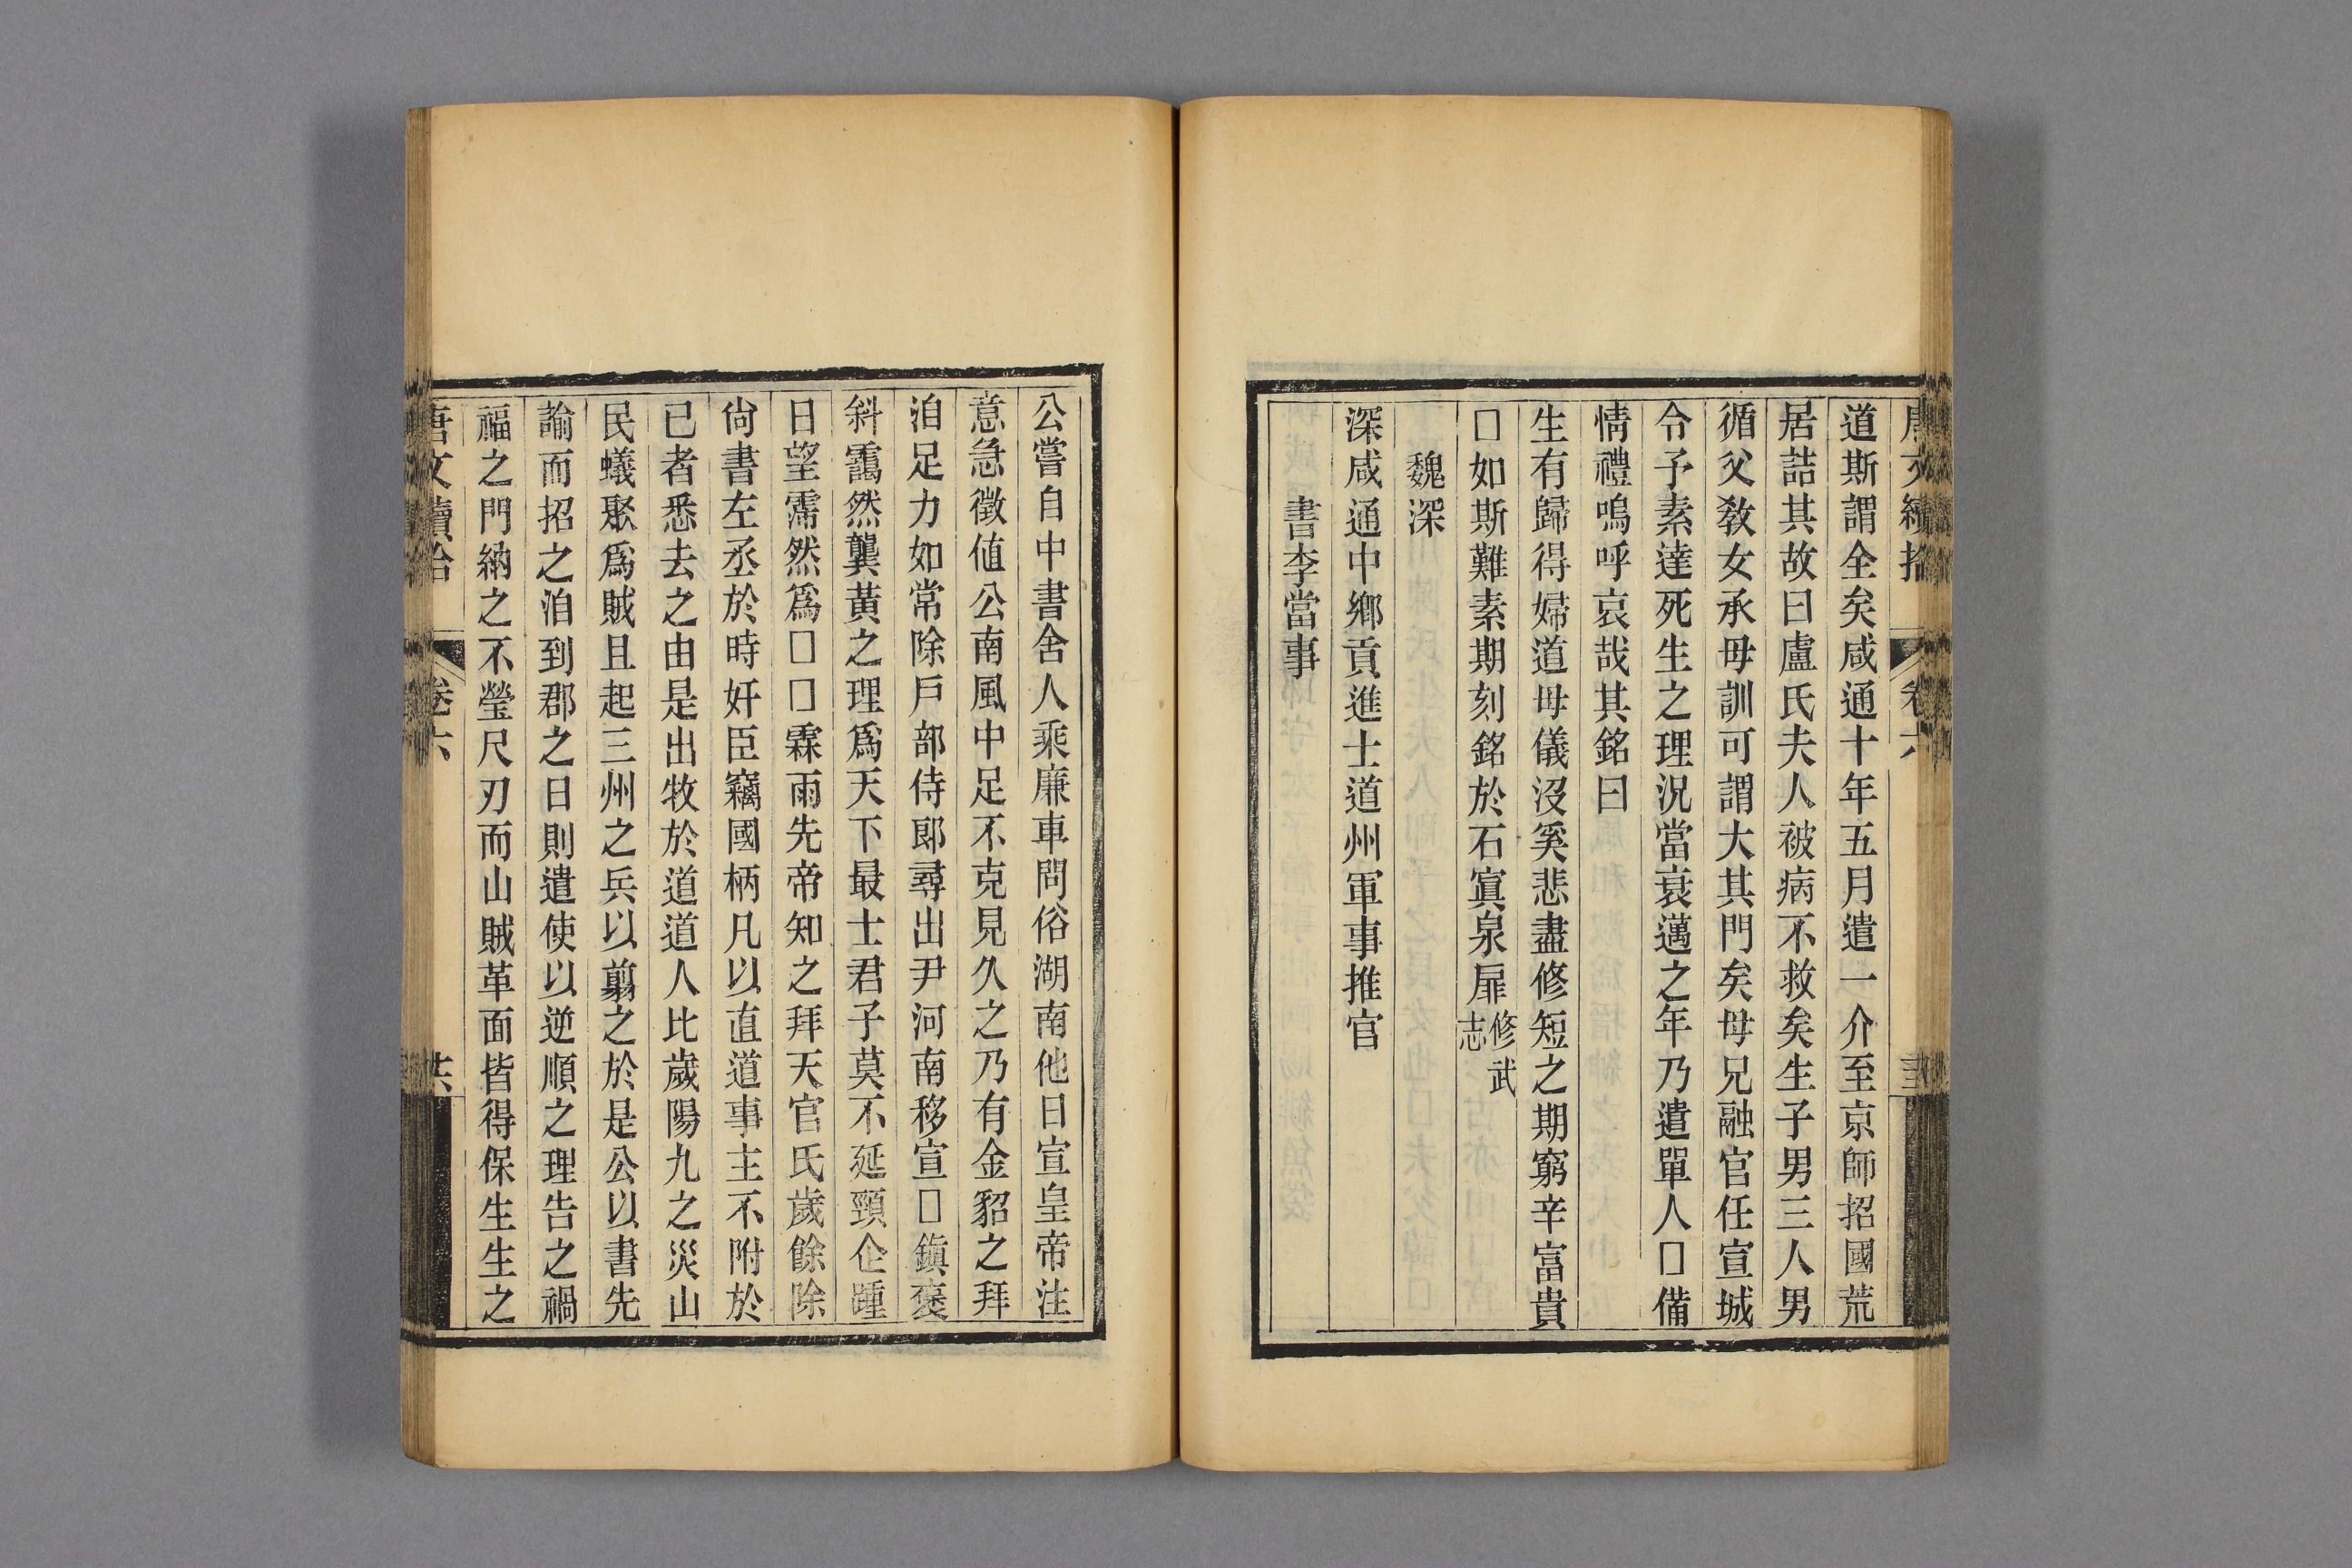 道斯謂全矣咸通十年五月遣一介至京師招國荒
居詰其故曰盧氏夫人被病不救矣生子男三人男
循父敎女承母訓可謂大其門矣母兄融官任宣城
令予素達死生之理況當衰邁之年乃遣單人□備
情禮嗚呼哀哉其銘曰
生有歸得婦道母儀沒奚悲盡修短之期窮辛富貴
□如斯難素期刻銘於石寘泉扉修武志
魏深
深咸通中鄉貢進士道州軍事推官
書李當事
公嘗自中書舍人乘廉車問俗湖南他日宣皇帝注
意急徵値公南風中足不克見久之乃有金貂之拜
洎足力如常除戶部侍郞尋出尹河南移宣□鎭褒
斜靄然龔黃之理爲天下最士君子莫不延頸企踵
日望霈然爲□□霖雨先帝知之拜天官氏歲餘除
尙書左丞於時奸臣竊國柄凡以直道事主不附於
已者悉去之由是出牧於道道人比歲陽九之災山
民蟻聚爲賊且起三州之兵以翦之於是公以書先
諭而招之洎到郡之日則遣使以逆順之理告之禍
福之門納之不瑩尺刃而山賊革面皆得保生生之
唐文續拾
卷六